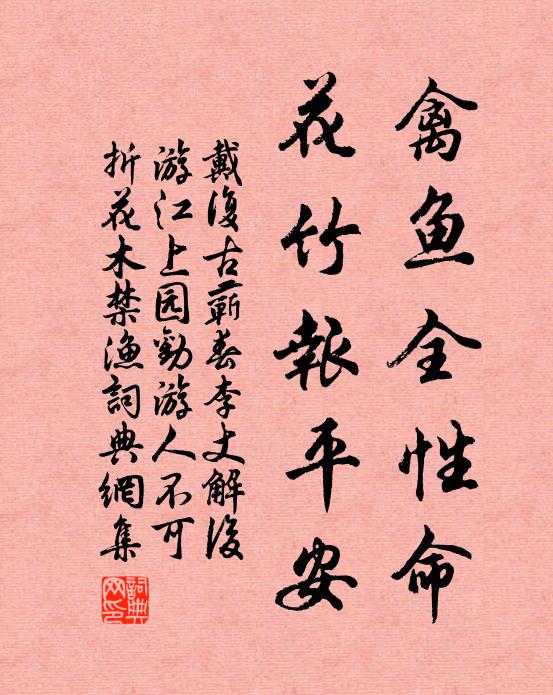 禽鱼全性命
花竹報平安
戴復古蘄春李丈解後
游江上园勸游人不可
折花木禁渔詞典網集
詞典网印